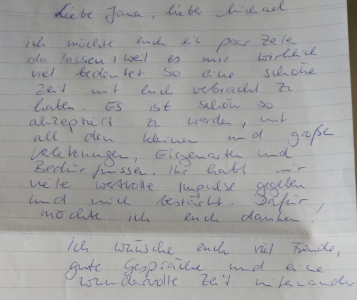 Liebe Jana, lieber Michael
ich möchte euch ein paar Zeilen
da lassen, weil es mir wirklich
viel bedeutet so eine schöne
Zeit mit euch verbracht zu
haben. Es ist schön so
akzeptiert zu werden, mit
all den kleinen und großen
Verletzungen, Eigenarten und
Bedürfnissen. Ihr habt mir
viele wertvolle Impulse gegeben
und mich bestärkt. Dafür
möchte ich euch danken!
Ich wünsche euch viel Freude,
gute Gespräche und eine
wundervolle Zeit miteinander